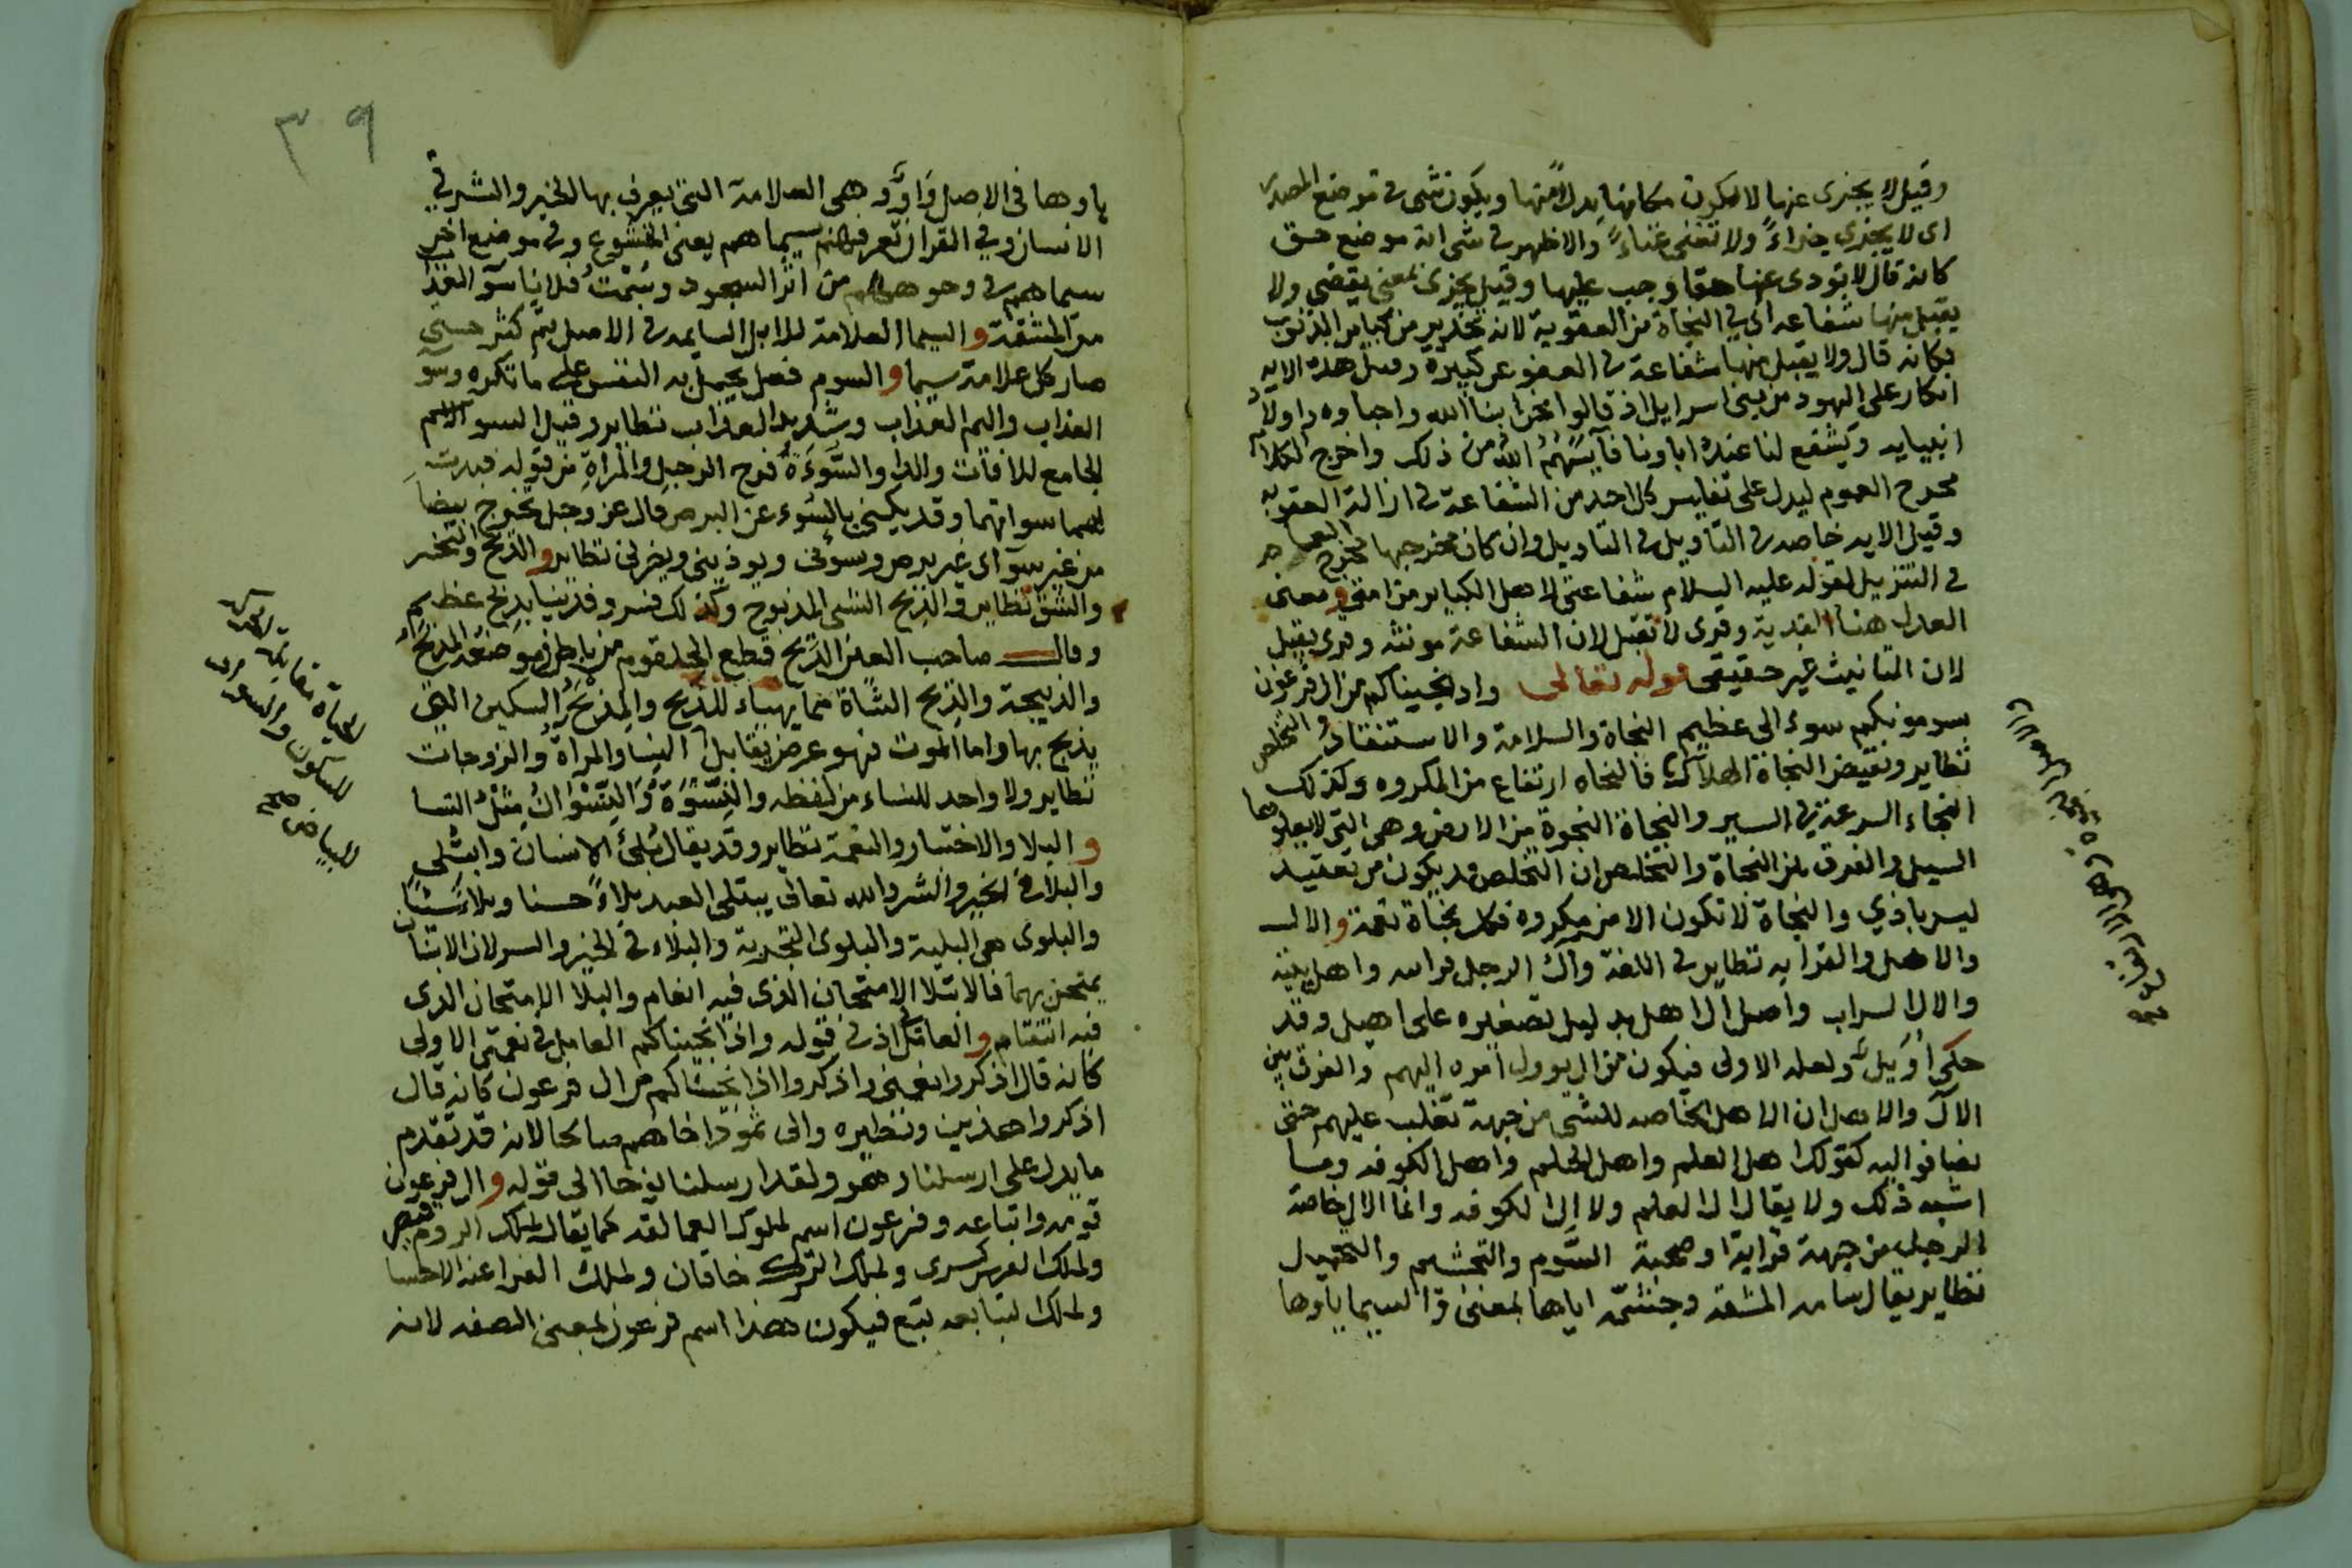 وقيل لا يجزى عنها لا يكون مكانها بدلا منها ويكون شى فى موضع المصدر
اى لا يجزى جزاءً ولا تغنى غناءً والاظهر فى شى انه موضع حق
كانه قال لا يودى عنها حقا وجب عليها وقيل يجزى بمعنى يقضى ولا
يقبل منها شفاعه اى فى النجاة من العقوبة لانه تحذير من كباير الذنوب
فكانه قال ولا يقبل منها شفاعة فى العفو عن كبيرة وقيل هذه الايه
انكار على اليهود من بنى اسرايل اذ قالوا نحن ابنا الله واحباوه واولاد
انبيايه ويشفع لنا عنده اباونا فآيسهم الله من ذلك واخرج الكلام
مخرج العموم ليدل على كل احد من الشفاعة فى ازالة العقوبه
وقيل الايه خاصه فى التاويل وان كان مخرجها مخرج العام
فى التنزيل لقوله عليه السلام شفاعتى لاهل الكباير من امتى ومعنى
العدل هنا الفدية وقرى لا تقبل لان الشفاعة مونثه وقرى يقبل
لان التانيث غير حقيقى قوله تعالى واذ نجيناكم من ال فرعون
يسومونكم سوء الى عظيم النجاة والسلامة والاستنقاذ والتخلص
نظاير ونقيض النجاة الهلاك فالنجاه ارتفاع من المكروه وكذلك
النجاء السرعة فى السير والنجاة النجوة من الارض وهى التى لا يعلوها
السيل والفرق بين النجاة والتخلص ان التخلص قد يكون من تعقيد
ليس باذي والنجاة لا تكون الا من مكروه فكل نجاة نعمة والال
والاهل والقرابه نظاير فى اللغة وآل الرجل قرابته واهل بيته
والال السراب واصل ال اهل بدليل تصغيره على اهيل وقد
حكى أُوَيل ولعله الاولى فيكون من ال يوول امره اليهم والفرق بين
الآل والاهل ان الاهل الخاصه للشى من جهة تغلب عليهم حتى
يضافوا اليه كقولك اهل العلم واهل الحلم واهل الكوفه وما
اشبه ذلك ولا يقال ال العلم ولا ال الكوفه وانما الال خاصة
الرجل من جهة قرابة او صحبة السوم والتجشيم والتحميل
نظاير يقال سامه المشقه وجشمه اياها بمعنى والسيما ياوها
٣٩
ياوها فى الاصل وَاوٌ وهى العلامة التى يعرف بها الخير والشر فى
الانسان وفى القرآن تعرفهم بسيماهم يعنى الخشوع وفى موضع اخر
سيماهم فى وجوههم من اثر السجود وسُمْتُ فلانا سوء العذاب
من المشقة والسيما العلامة للابل السايمه فى الاصل ثم كثر حتى
صار كل علامة سيما والسوم فعل يحمل به النفس على ما تكره وسو
العذاب واليم العذاب وشديد العذاب نظاير وقيل السو الاسم
الجامع للافات والدا والسَّوءَة فرج الرجل والمراة من قوله فبدت
لهما سواتهما وقد يكنى بالسُوء عن البرص قال عز وجل تخرج بيضا
من غير سوء اى غير برص وسوٴنى ويوذينى ويضرنى نظاير والذبح والنحر
والشق نظاير والذبح الشى المذبوح وكذلك فسر وفديناه بذبح عظيم
وقال صاحب العين الذبح قطع الحلقوم من باطن موضعه المذبح
والذبيحة والذبح الشاة مما يهياء للذبح والمِذبَحُ السكين التى
يذبح بها واما الموت فهو عرض يقابل النسا والمراة والزوجات
نظاير ولا واحد للنساء من لفظه والنسوة والنسوان مثل النسا
والبلا والاختبار والنعمة نظاير وقد يقال بُلِىَ الانسان وابتُلى
والبلا فى الخير والشر والله تعالى يبتلى العبد بلاءً حسنا وبلاءً سيئًا
والبلوى هى البلية والبلوى التجربة والبلاء فى الخير والشر لان الانسان
يمتحن بهما فالابتلا الامتحان الذى فيه انعام والبلا الامتحان الذى
فيه انتقام والعامل اذ فى قوله واذ انجيناكم العامل فى نعمتى الاولى
كانه قال اذكروا نعمتى واذكروا اذ انجيناكم من ال فرعون كانه قال
اذكروا هذين ونظيره والى ثمود اخاهم صالحا لانه قد تقدم
ما يدل على ارسلنا وهو ولقد ارسلنا نوحا الى قوله وال فرعون
قومه واتباعه وفرعون اسم لملوك العمالقه كما يقال لملك الروم قيصر
ولملك الفرس كسرى ولملك الترك خاقان ولملك الفراعنه الاطسا
ولملك التبابعه تبع فيكون هذا اسم فرعون بمعنى الصفه لانه